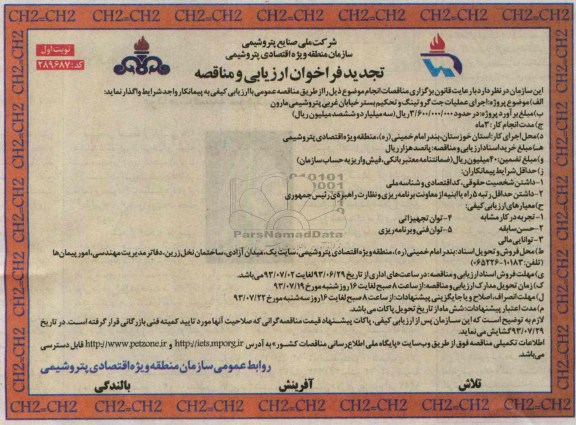 CH2=CH2 CH2=CH2 CH2=CH2 CH2=CH2 CH2=CH2 CH2=CH2
شرکت ملی صنایع پتروشیمی
سازمان منطقه ویژه اقتصادی پتروشیمی
نوبت اول
کد: ۲۸۹۶۸۷
تجدید فراخوان ارزیابی و مناقصه
این سازمان در نظر دارد با رعایت قانون برگزاری مناقصات انجام موضوع ذیل را از طریق مناقصه عمومی با ارزیابی کیفی به پیمانکار واجد شرایط واگذار نماید:
الف) موضوع پروژه: اجرای عملیات جت گروتینگ و تحکیم بستر خیابان غربی پتروشیمی مارون
ب) مبلغ برآورد پروژه: در حدود ۳/۶۰۰/۰۰۰/۰۰۰ ریال (سه میلیارد و ششصد میلیون ریال)
ج) مدت انجام کار: ۳ ماه
د) محل اجرای کار: استان خوزستان، بندر امام خمینی (ره)، منطقه ویژه اقتصادی پتروشیمی
هـ) مبلغ خرید اسناد ارزیابی و مناقصه: پانصد هزار ریال
و) مبلغ تضمین: ۴۰ میلیون ریال (ضمانتنامه معتبر بانکی، فیش واریز به حساب سازمان)
ز) حداقل شرایط پیمانکاران:
۱- داشتن شخصیت حقوقی، کد اقتصادی و شناسه ملی
۲- داشتن حداقل رتبه ۵ راه یا ابنیه از معاونت برنامه ریزی و نظارت راهبردی رئیس جمهوری
ح) معیارهای ارزیابی کیفی:
۱- تجربه در کار مشابه ۴- توان تجهیزاتی
۲- حسن سابقه ۵- توان فنی و برنامه ریزی
۳- توانایی مالی
ط) محل فروش و تحویل اسناد: بندر امام خمینی (ره)، منطقه ویژه اقتصادی پتروشیمی، سایت یک، میدان آزادی، ساختمان نخل زرین، دفاتر مدیریت مهندسی، امور پیمان ها
(تلفن: ۱۰۱۸۳-۰۶۵۲۲۶)
ی) مهلت فروش اسناد ارزیابی و مناقصه: در ساعت های اداری از تاریخ ۹۳/۰۶/۲۹ لغایت ۹۳/۰۷/۰۲ می باشد.
ک) زمان تحویل مدارک ارزیابی و مناقصه: از ساعت ۸ صبح لغایت ۱۶ روز شنبه مورخ ۹۳/۰۷/۱۹
ل) مهلت انصراف، اصلاح و یا جایگزینی پیشنهادات: از ساعت ۸ صبح لغایت ۱۶ روز سه شنبه مورخ ۹۳/۰۷/۲۲
م) مدت اعتبار پیشنهادات: شش ماه از تاریخ تحویل پاکات می باشد.
لازم به توضیح است که این سازمان پس از ارزیابی کیفی، پاکات پیشنهاد قیمت مناقصه گرانی که صلاحیت آنها مورد تایید کمیته فنی بازرگانی قرار گرفته است، در تاریخ
۹۳/۰۷/۲۹ گشایش می نماید.
اطلاعات تکمیلی مناقصه فوق از طریق وب سایت «پایگاه ملی اطلاع رسانی مناقصات کشور» به آدرس http://iets.mporg.ir و http://www.petzone.ir قابل دسترسی
می باشد.
روابط عمومی سازمان منطقه ویژه اقتصادی پتروشیمی
تلاش آفرینش بالندگی
CH2=CH2 CH2=CH2 CH2=CH2 CH2=CH2 CH2=CH2 CH2=CH2
ParsNamadData